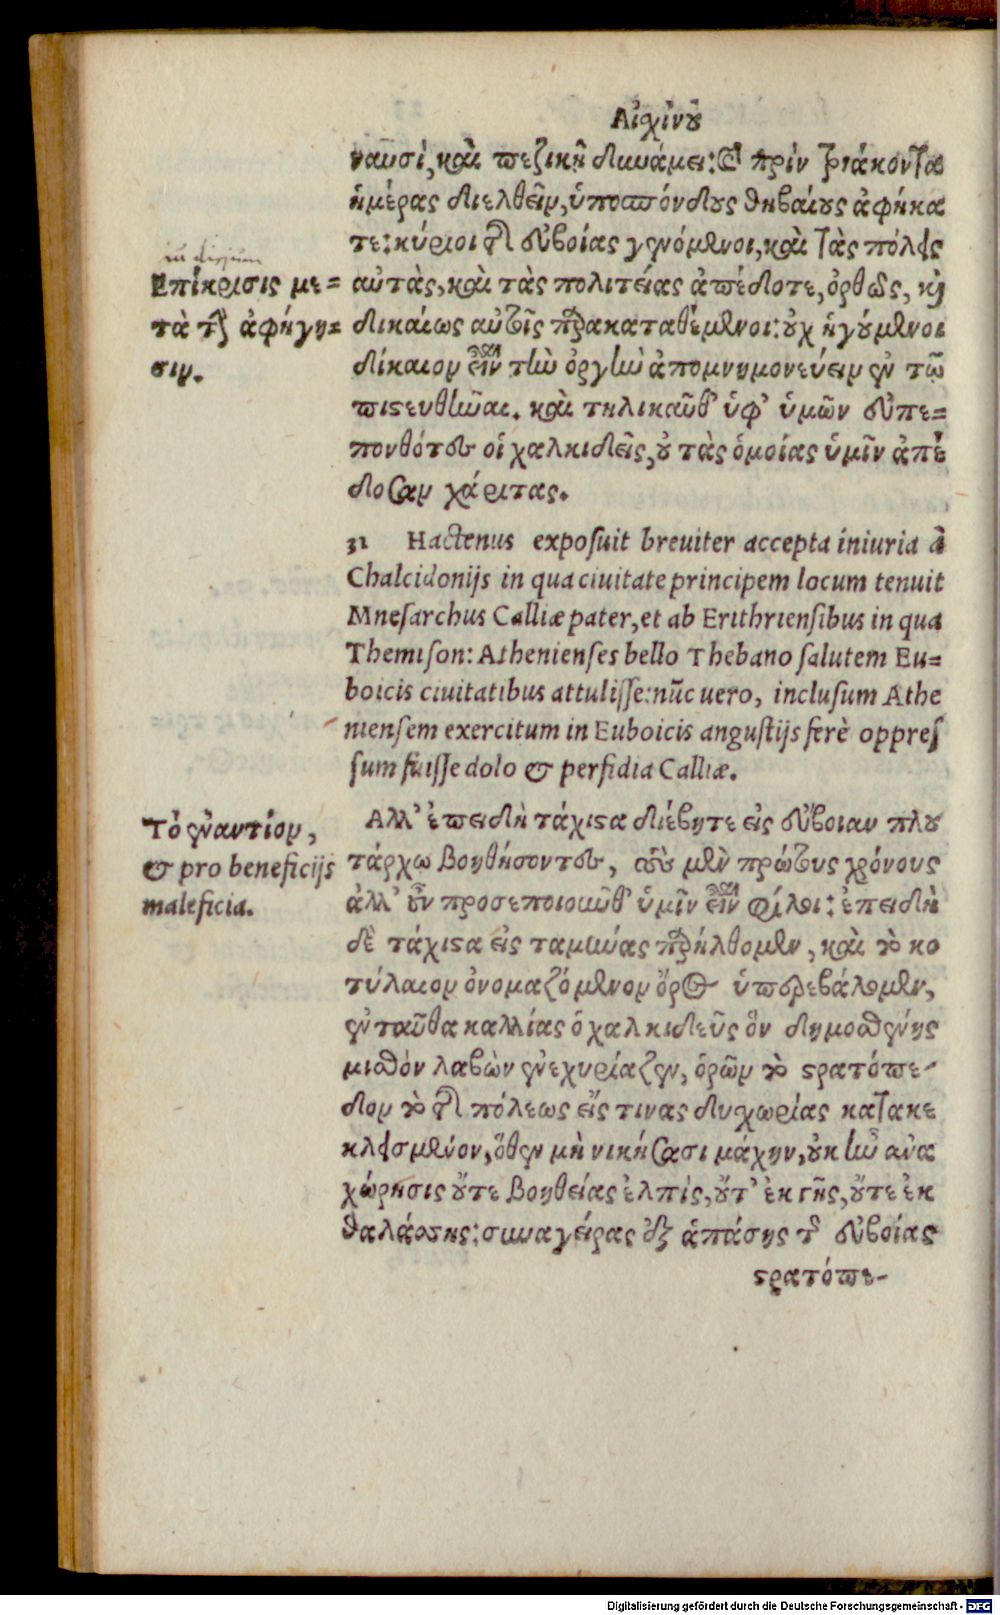 Αἰχίνου
ναυσὶ, καὶ πεζικῇ δυνάμει: καὶ πρὶν τριάκοντα
ἡμέρας διελθεῖν, ὑποσπόνδους θηβαίους ἀφήκα
τε: κύριοι τῆς εὐβοίας γενόμενοι, καὶ τὰς πόλεις
iudicium
Επίκρισις με=
τὰ τὴν ἀφήγη=
σιν.
αὐτὰς, καὶ τὰς πολιτείας ἀπέδοτε, ὀρθῶς, καὶ
δικαίως αὐτοῖς παρακαταθέμενοι: οὐχ ἡγούμενοι
δίκαιον εἶναι τὴν ὀργὴν ἀπομνημονεύειν ἐν τῷ
πιστευθῆναι. καὶ τηλικαῦθ' ὑφ' ὑμῶν εὖ πε=
πονθότες οἱ χαλκιδεῖς, οὐ τὰς ὁμοίας ὑμῖν ἀπέ
δοσαν χάριτας.
31 Hactenus exposuit breuiter accepta iniuria à
Chalcidonijs in qua ciuitate principem locum tenuit
Mnesarchus Calliæ pater, et ab Erithriensibus in qua
Themison: Athenienses bello Thebano salutem Eu=
boicis ciuitatibus attulisse: nũc uero, inclusum Athe
niensem exercitum in Euboicis angustijs ferè oppres
sum fuisse dolo & perfidia Calliæ.
Τὸ ἐναντίον,
& pro beneficijs
maleficia.
Αλλ' ἐπειδὴ τάχιστα διέβητε εἰς εὔβοιαν πλου
τάρχῳ βοηθήσοντες, τοὺς μὲν πρώτους χρόνους
ἀλλ' οὖν προσεποιοῦνθ' ὑμῖν εἶναι φίλοι: ἐπειδὴ
δὲ τάχιστα εἰς ταμύνας παρήλθομεν, καὶ τὸ κο
τύλαιον ὀνομαζόμενον ὄρος ὑπερεβάλομεν,
ἐνταῦθα καλλίας ὁ χαλκιδεὺς ὃν δημοσθένης
μισθὸν λαβὼν ἐνεχυρίαζεν, ὁρῶν τὸ στρατόπε-
δον τὸ τῆς πόλεως εἴς τινας δυχωρίας κατακε
κλεισμένον, ὅθεν μὴ νικήσασι μάχην, οὐκ ἦν ἀνα
χώρησις οὔτε βοηθείας ἐλπὶς, οὔτ' ἐκ γῆς, οὔτε ἐκ
θαλάσσης: συναγείρας ἐξ ἁπάσης τῆς εὐβοίας
στρατόπε-
Digitalisierung gefördert durch die Deutsche Forschungsgemeinschaft - DFG